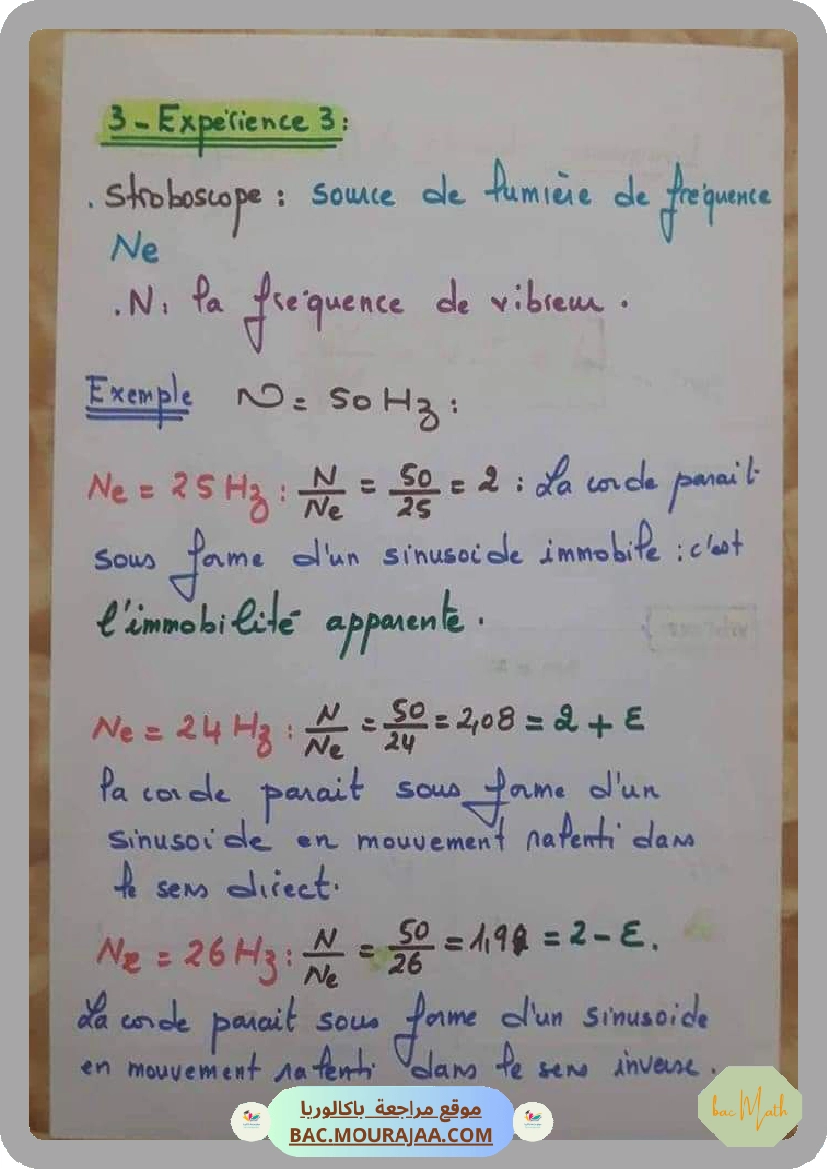 3 - Expérience 3 :
. Stroboscope : source de lumière de fréquence
Ne
. N : la fréquence de vibreur .
Exemple N = 50 Hz :
Ne = 25 Hz : N/Ne = 50/25 = 2 : La corde parait
sous forme d'un sinusoide immobile : c'est
l'immobilité apparente .
Ne = 24 Hz : N/Ne = 50/24 = 2,08 = 2 + ε
la corde parait sous forme d'un
sinusoide en mouvement ralenti dans
le sens direct.
Ne = 26 Hz : N/Ne = 50/26 = 1,92 = 2 - ε .
La corde parait sous forme d'un sinusoide
en mouvement ralenti dans le sens inverse .
موقع مراجعة باكالوريا
BAC.MOURAJAA.COM
bac Math